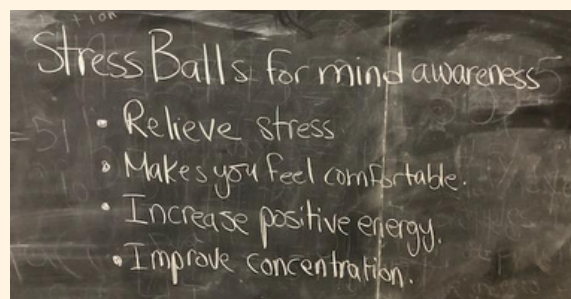 Stress Balls for mind awareness
• Relieve stress
• Makes you feel comfortable.
• Increase positive energy.
• Improve concentration.